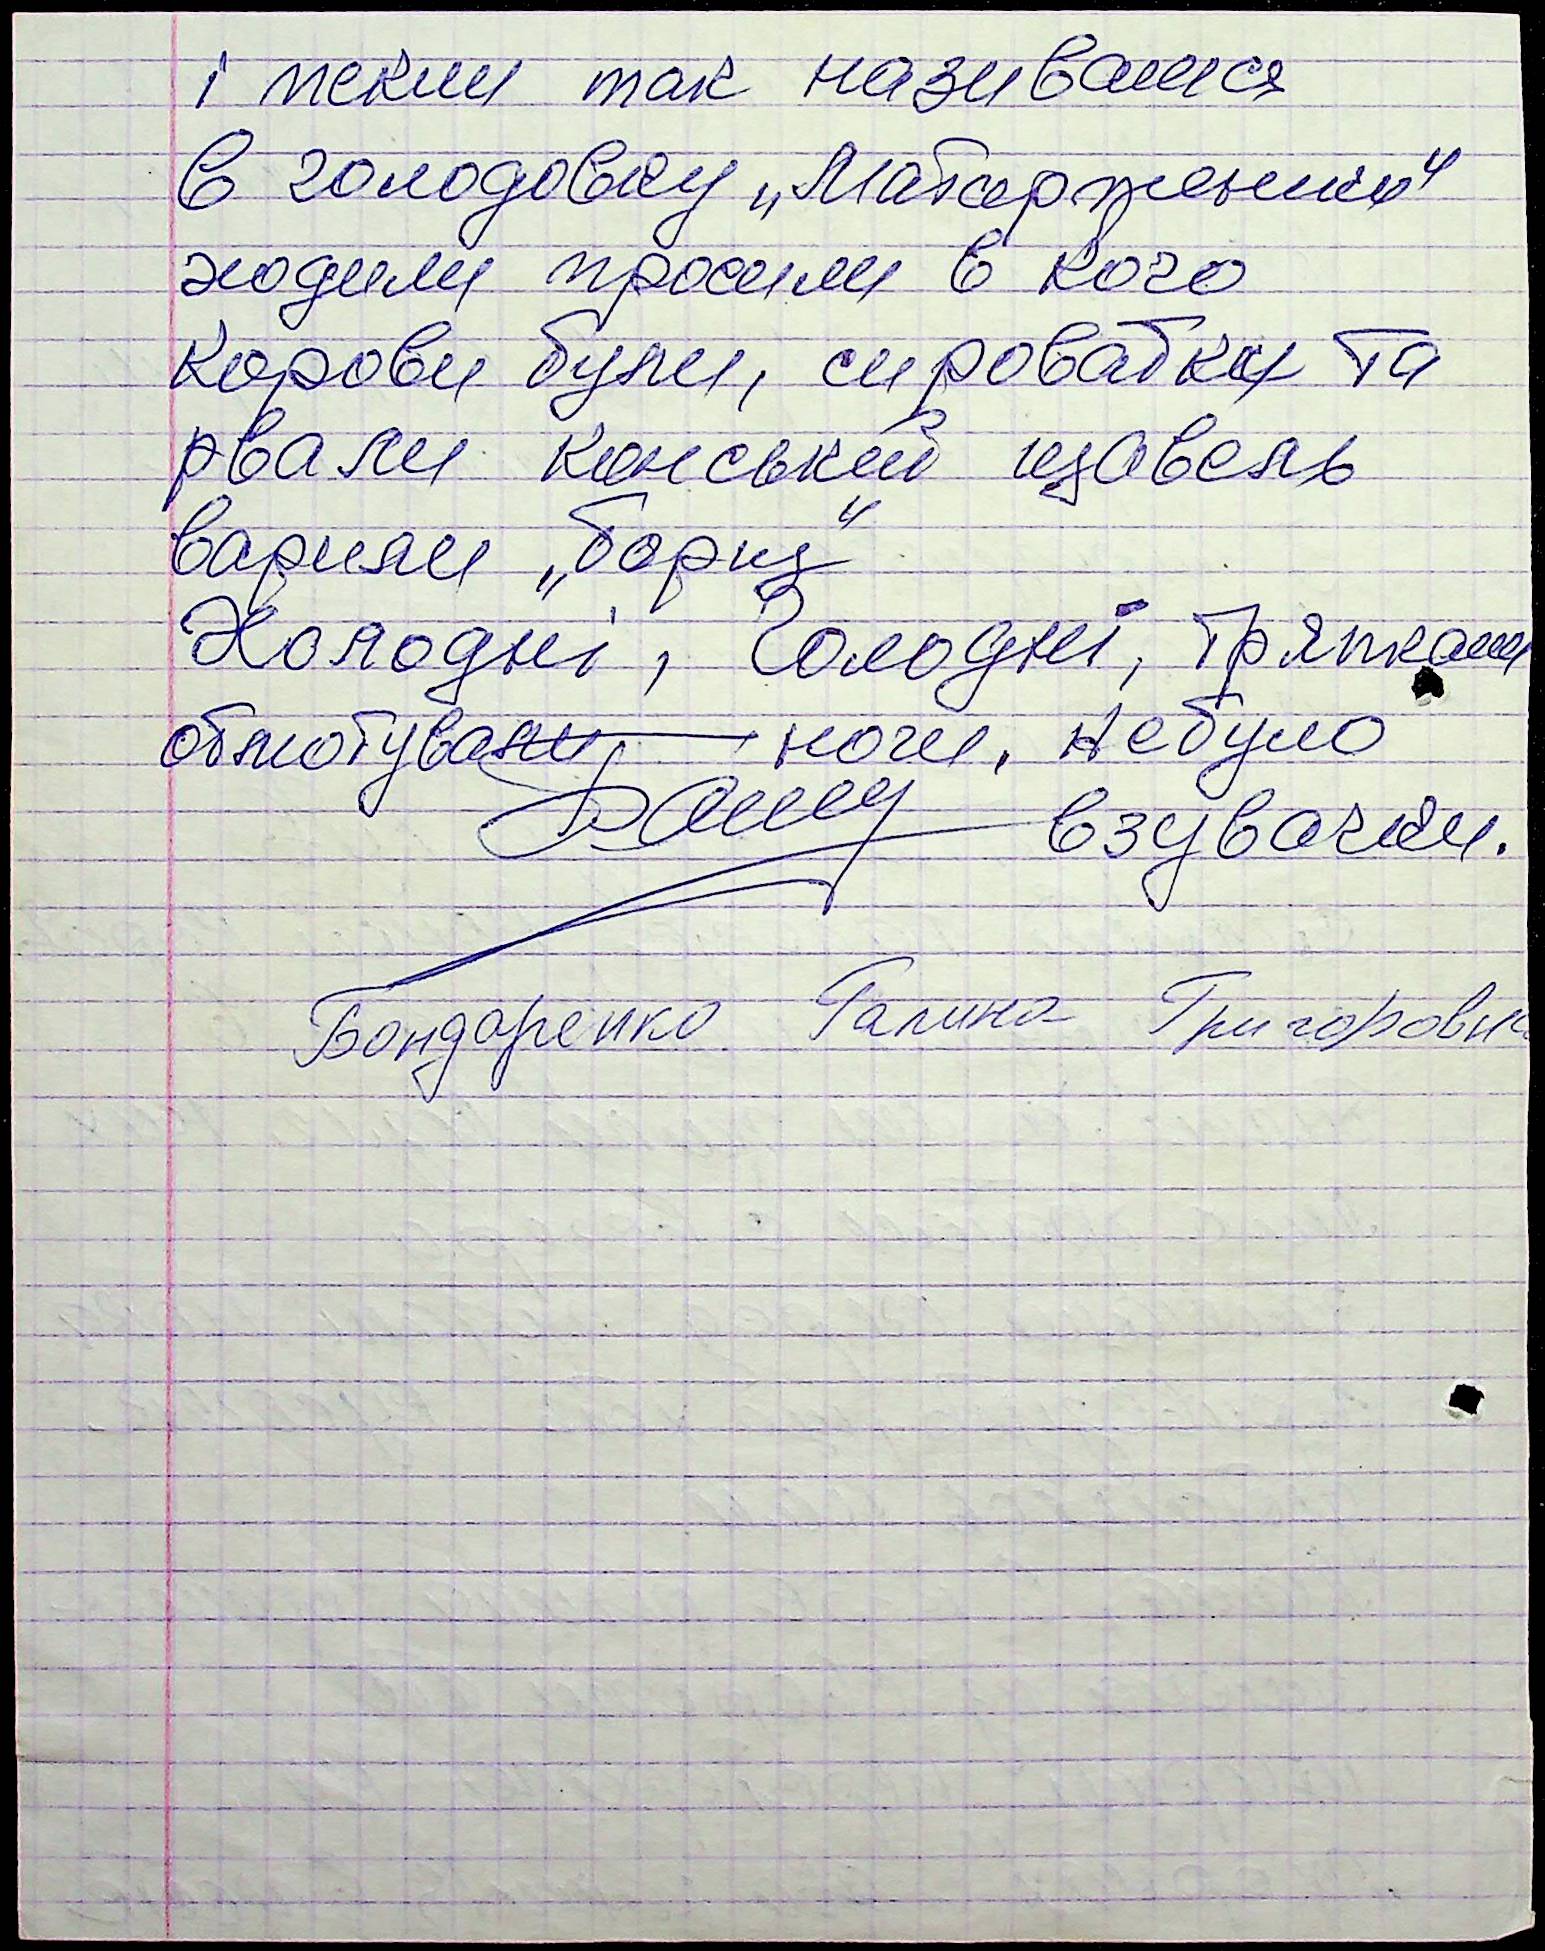 і пекли так називалися
в голодовку „Маторженики“
ходили просили в кого
корови були, сироватки та
рвали конський щавель
варили „борщ“
Холодні, Голодні, тряпками
обмотували ноги, небуло
взувачки.
Бондаренко Галина Григоровна